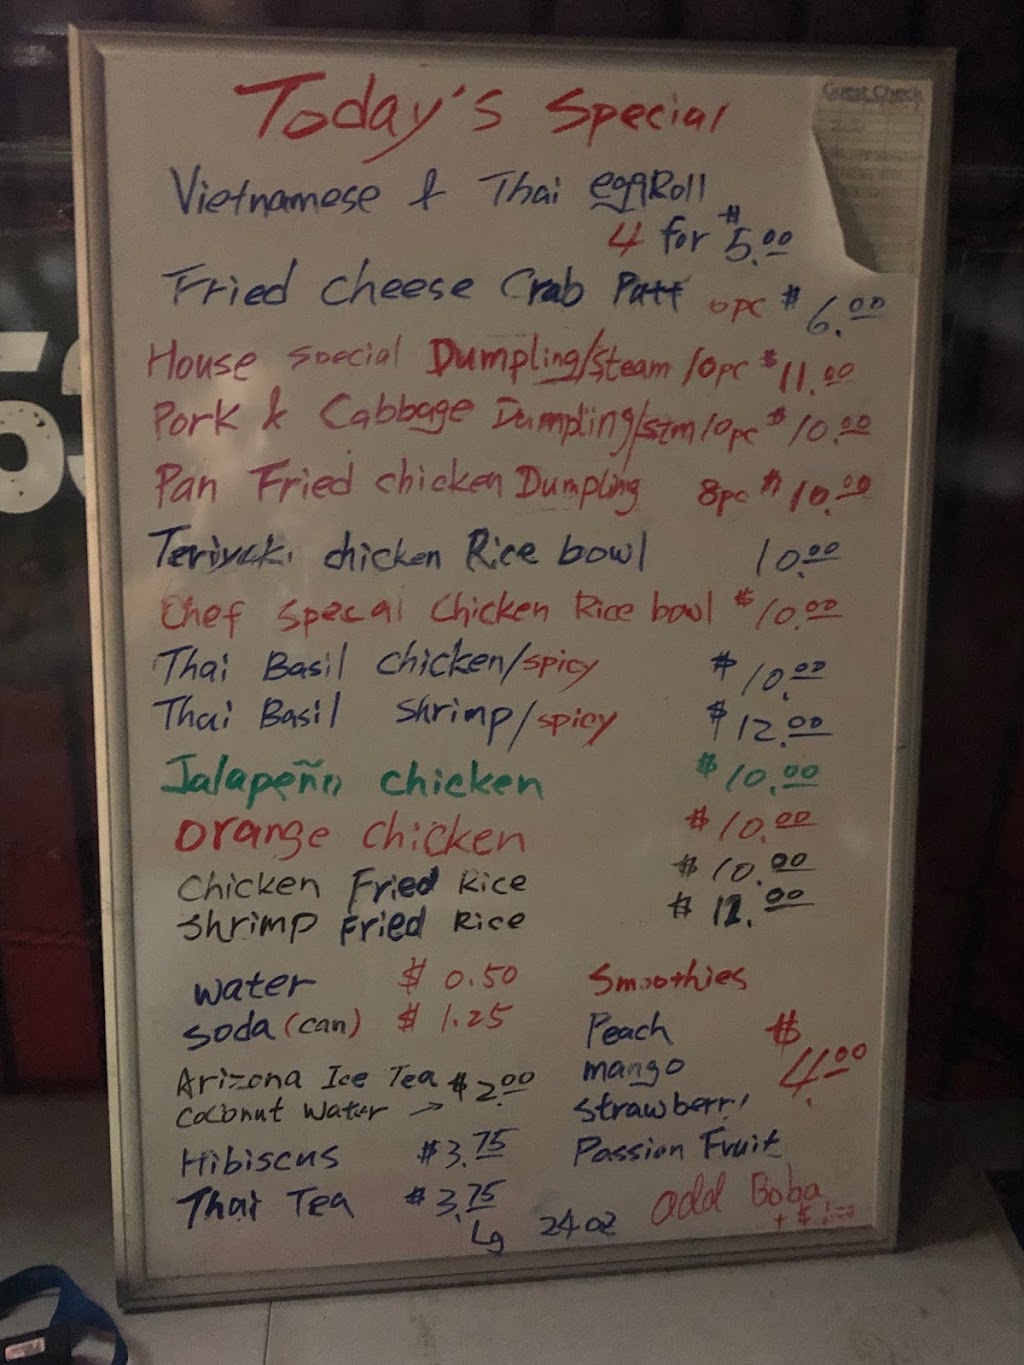 Guest Check
Today's Special
Vietnamese & Thai eggRoll
4 for $5.00
Fried cheese Crab Patt pc $6.00
House special Dumpling/steam 10pc $11.00
Pork & Cabbage Dumpling/stm 10pc $10.00
Pan Fried chicken Dumpling 8pc $10.00
Teriyaki chicken Rice bowl 10.00
Chef Specal Chicken Rice bowl $10.00
Thai Basil chicken/spicy $10.00
Thai Basil Shrimp/spicy $12.00
Jalapeño chicken $10.00
orange chicken $10.00
Chicken Fried Rice $10.00
Shrimp Fried Rice $12.00
water $0.50
soda (can) $1.25
Arizona Ice Tea $2.00
Coconut Water →
Hibiscus $3.75
Thai Tea $3.75
Lg 24oz
Smoothies
Peach $4.00
mango
strawberry
Passion Fruit
add Boba